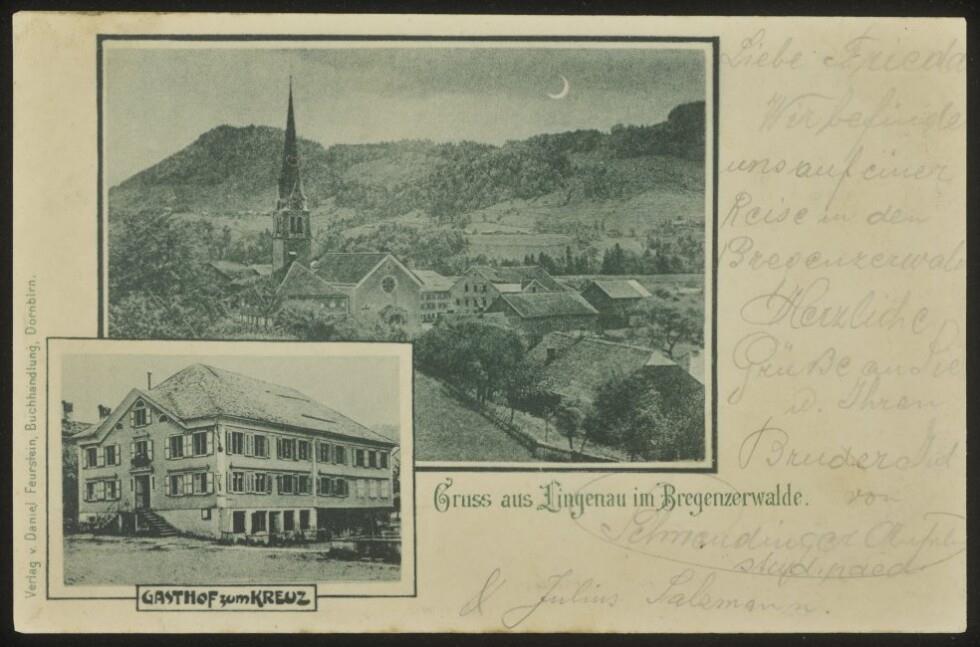 Liebe Frieda
Wir befinde
uns auf einer
Reise in den
Bregenzerwald
Herzliche
Grüße an Sie
u. Ihren
Bruder
von
Schmerdinger
stud. paed.
& Julius Salzmann.
Gruss aus Lingenau im Bregenzerwalde.
GASTHOF zum KREUZ
Verlag v. Daniel Feurstein, Buchhandlung, Dornbirn.